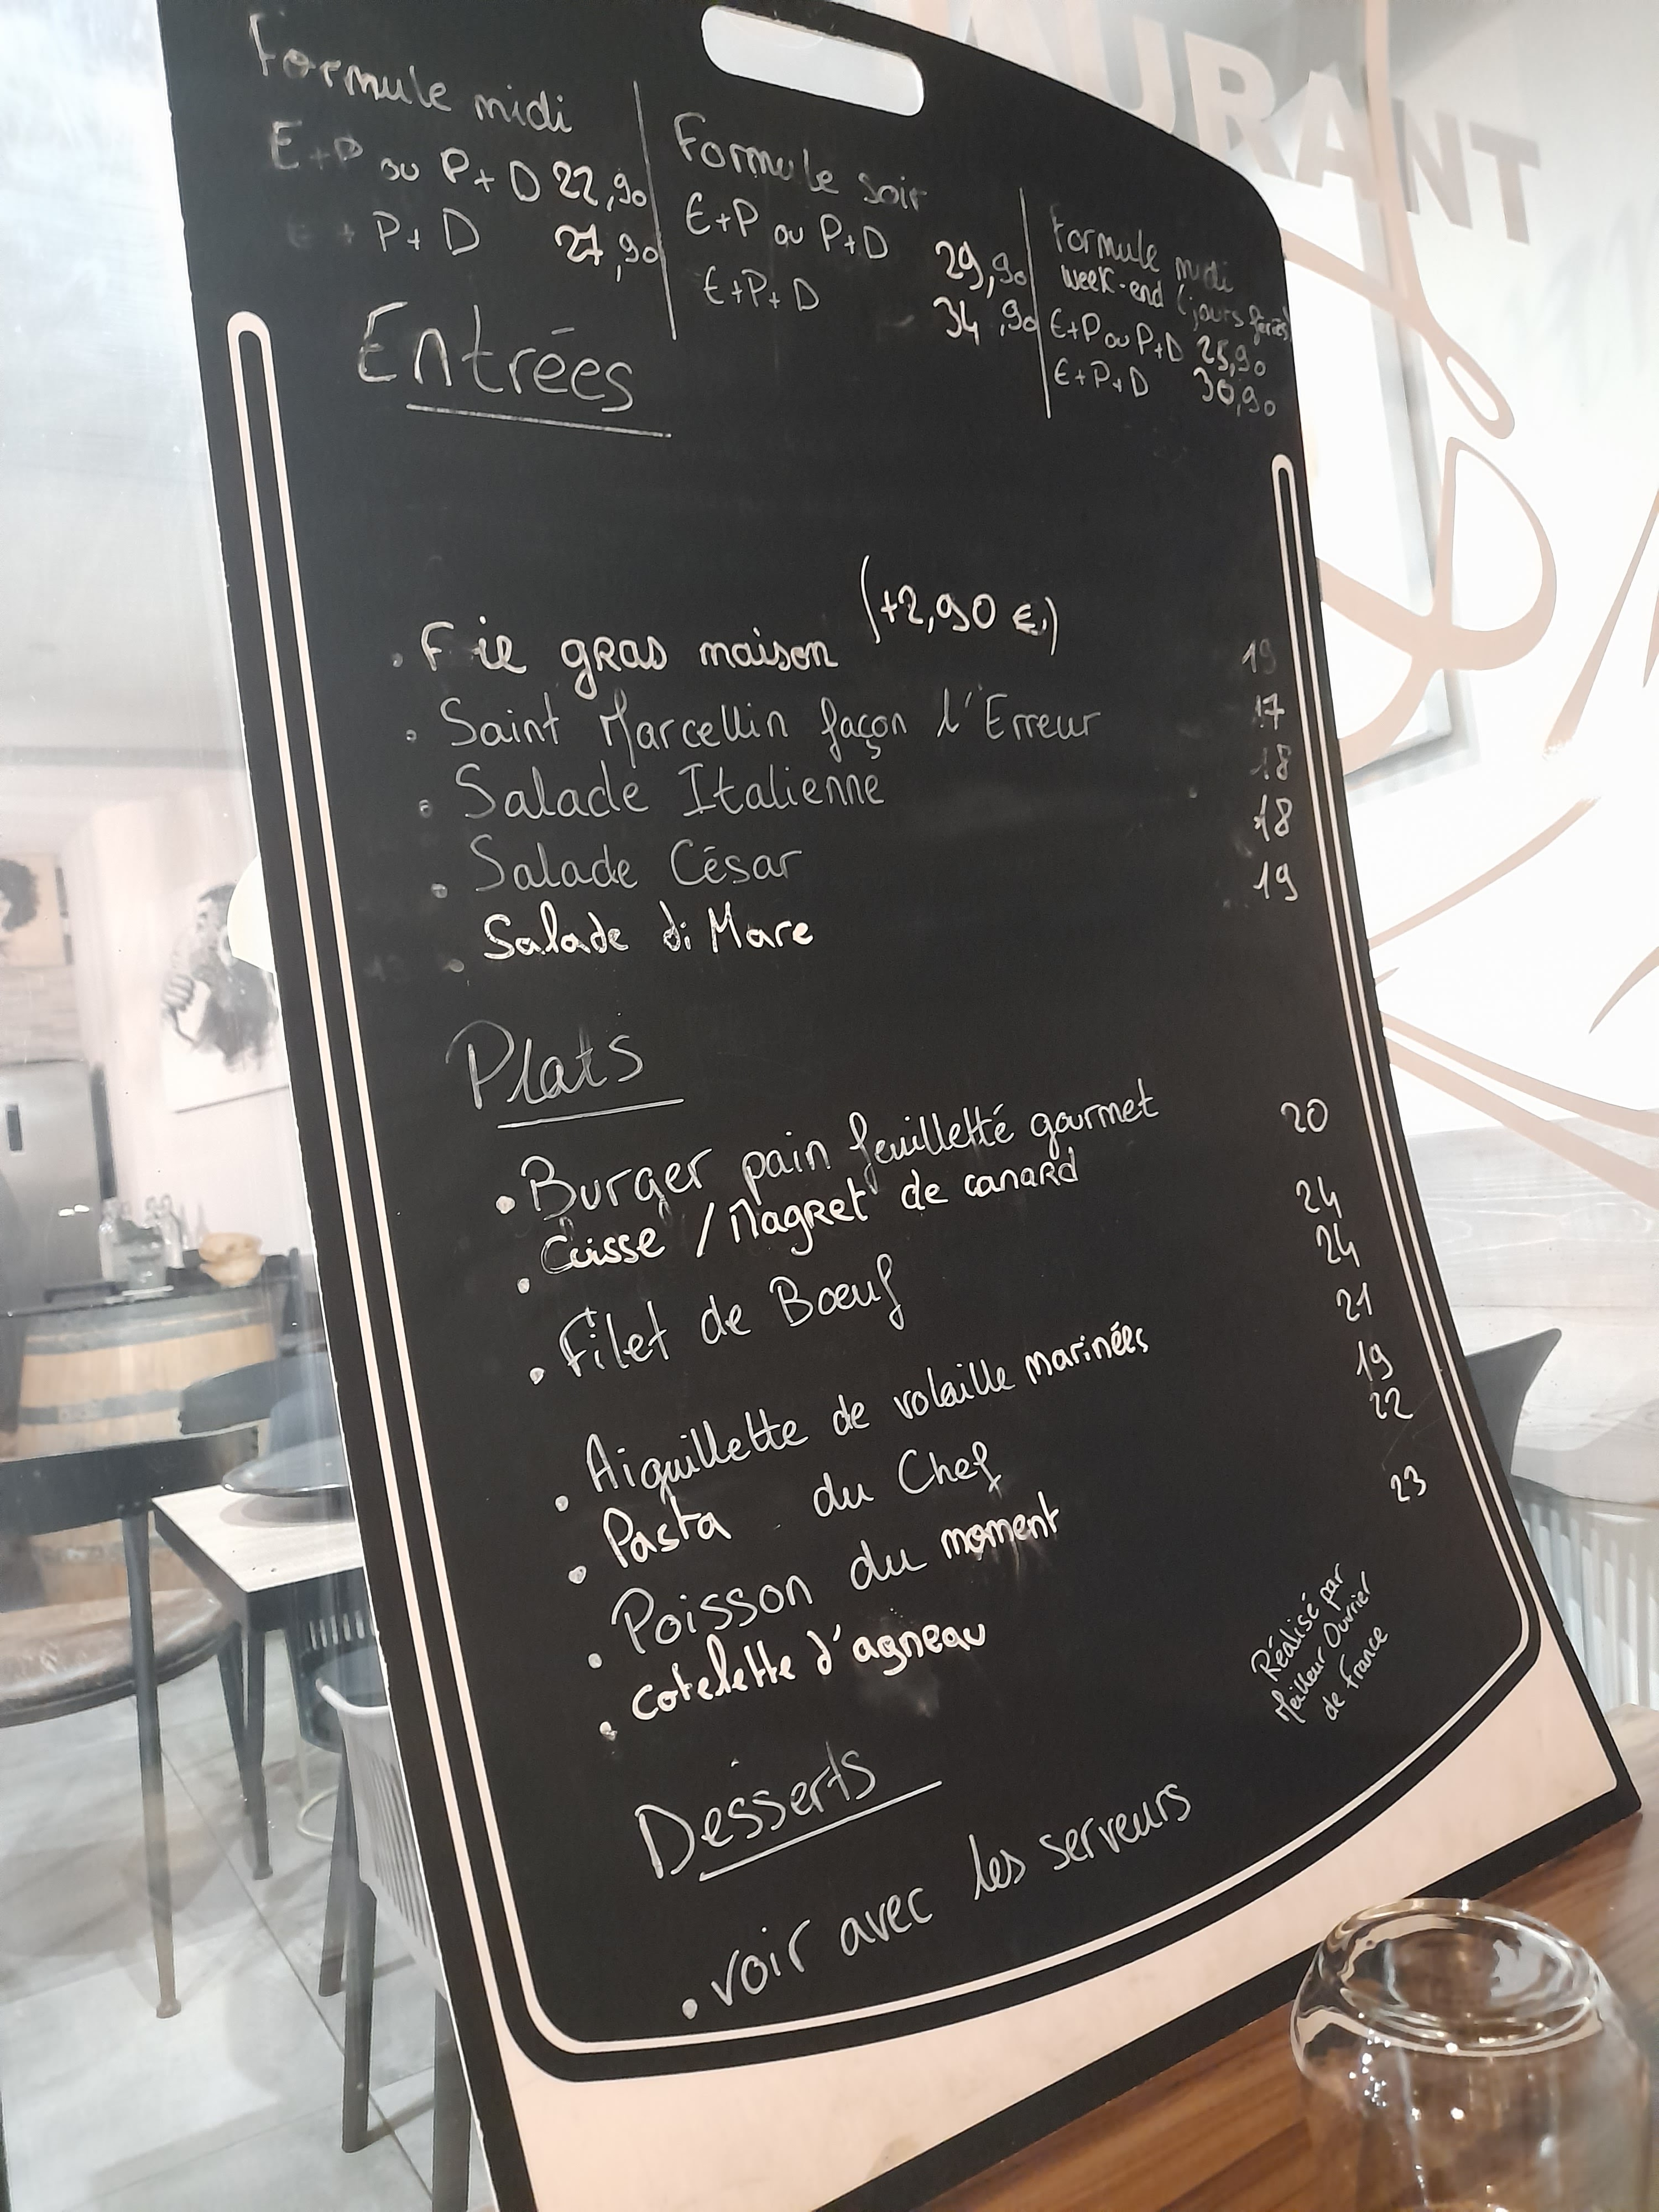 Formule midi
E+P ou P+D 22,90
E+P+D 27,90
Formule soir
E+P ou P+D 29,90
E+P+D 34,90
Formule midi
week-end (jours fériés)
E+P ou P+D 25,90
E+P+D 30,90
Entrées
. F ie gras maison (+2,90 €.) 19
. Saint Marcellin façon l'Erreur 17
. Salade Italienne 18
. Salade César 18
. Salade di Mare 19
Plats
. Burger pain feuilletté gourmet 20
. Cuisse / Magret de canard 24
. Filet de Bœuf 24
. Aiguillette de volaille marinées 21
. Pasta du Chef 19
. Poisson du moment 22
. cotelette d'agneau 23
Réalisé par
Meilleur Ouvrier
de France
Desserts
. voir avec les serveurs
AURANT